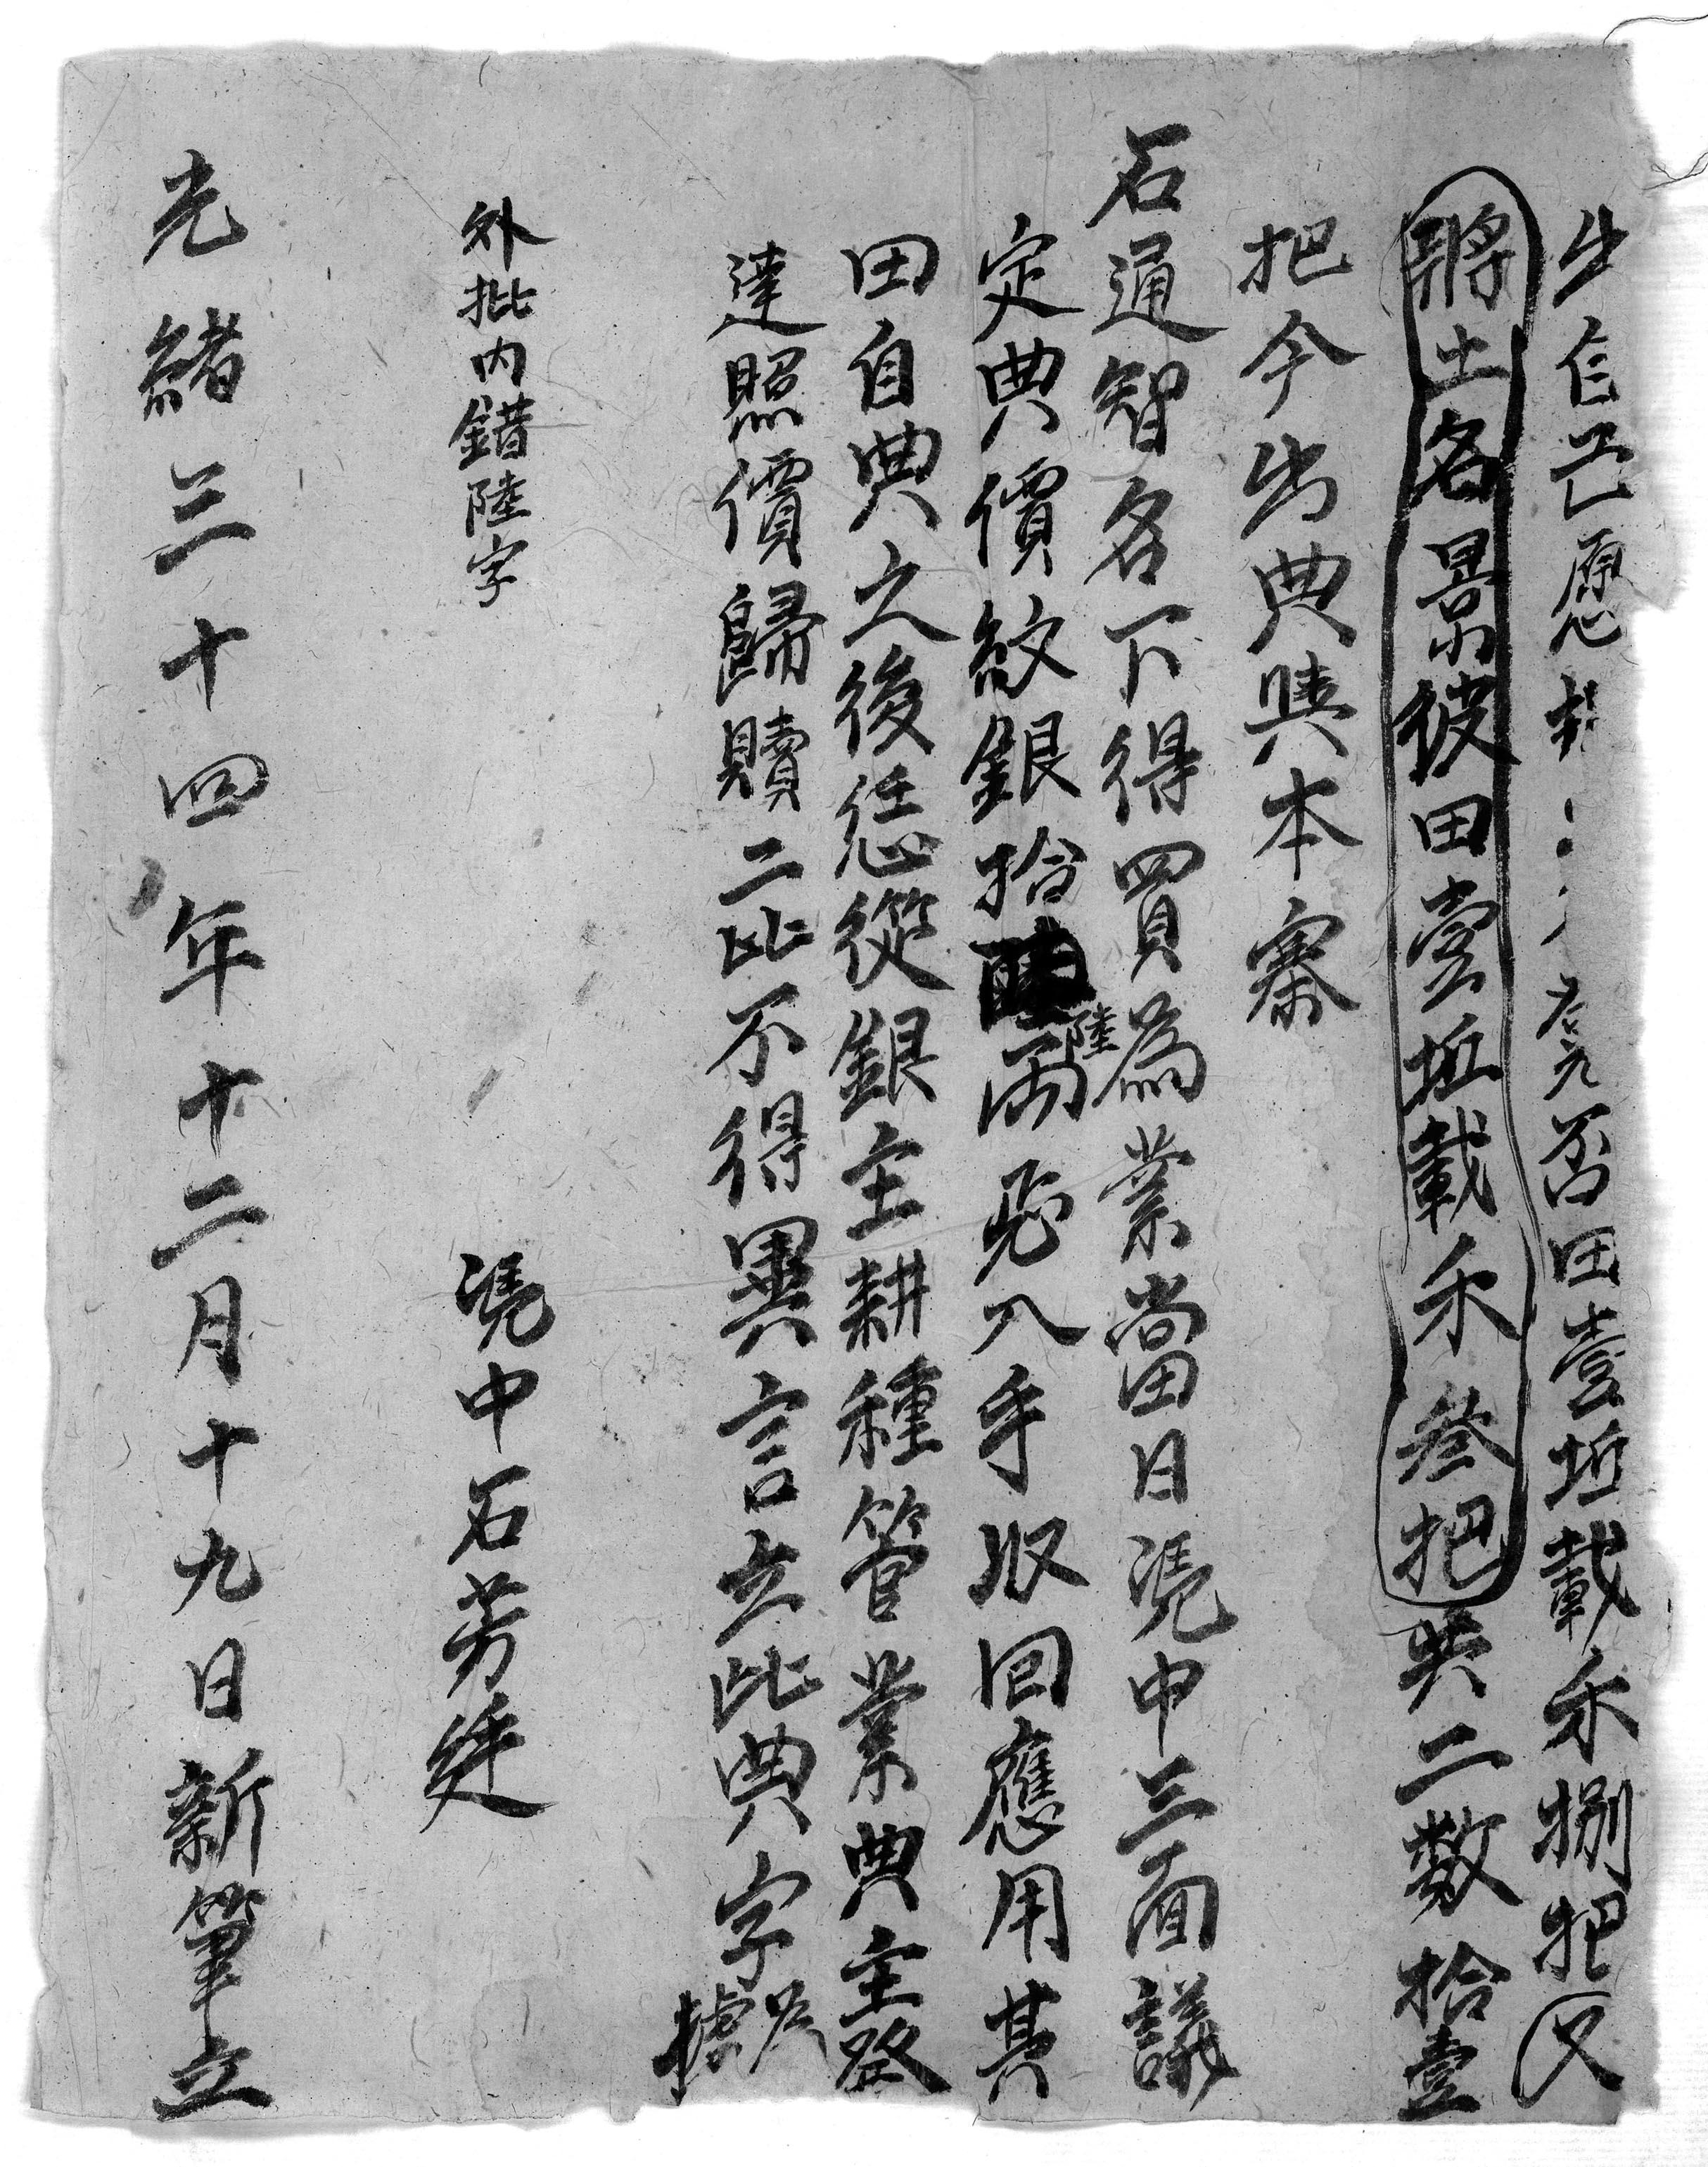 出自己愿將 否田壹坵載禾捌把又
將土名景彼田壹坵載禾叁把共二数拾壹
把今出典與本寨
石通智名下得買為業當日凴中三面議
定典價紋銀拾陸兩 入手收回應用其
田自典之後恁從銀主耕種管業典主發
達照價歸贖二比不得異言立此典字為
據
外批内錯陸字
凴中石芳廷
光緒三十四年十二月十九日新筆立